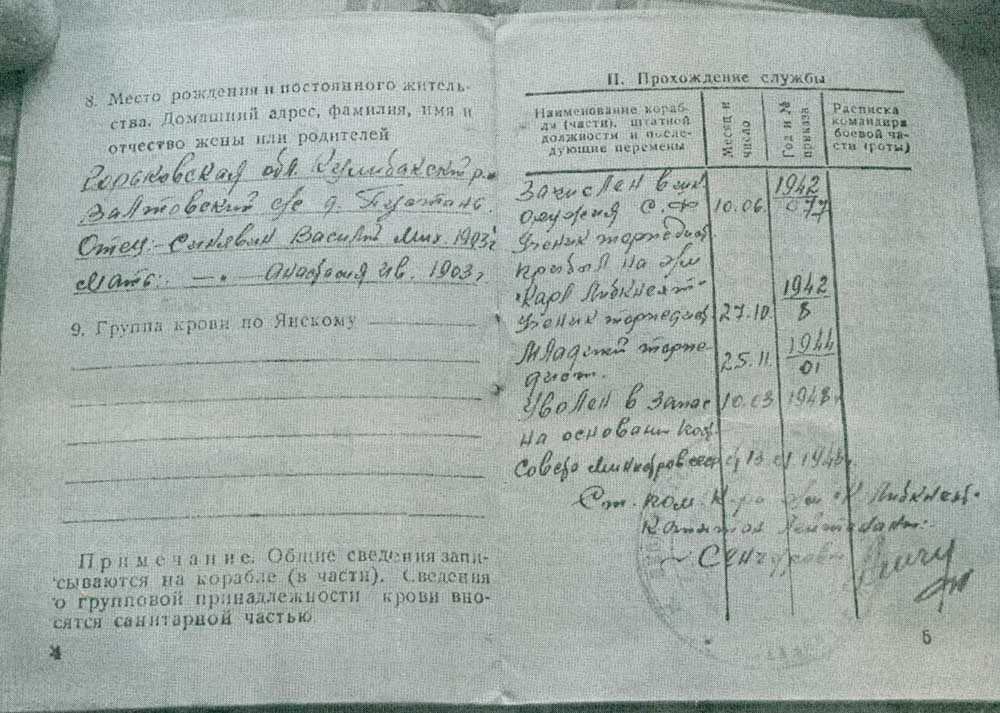 8. Место рождения и постоянного житель-
ства. Домашний адрес, фамилия, имя и
отчество жены или родителей
Горьковская обл. Кулибакский р-н
Валтовский с/с д.
Отец: - Синявин Василий Мих. 1903г
Мать: —„— Анастасия Ив. 1903г
9. Группа крови по Янскому
Примечание. Общие сведения запи-
сываются на корабле (в части). Сведения
о групповой принадлежности крови вно-
сятся санитарной частью
4
II. Прохождение службы
Наименование кораб-
ля (части), штатной
должности и после-
дующие перемены
Месяц и
число
Год и №
приказа
Расписка
командира
боевой ча-
сти (роты)
Зачислен в шк. 1942
оружия С.Ф 10.06. 077
Ученик торпедист
прибыл на э/м
"Карл Либкнехт" 1942
Ученик торпедист 27.10. 8
Младший торпе- 1944
дист. 25.11. 01
Уволен в запас 10.03 1948г
на основании
Совета Министров 1948г.
Ст. пом. э/м "К. Либкнехт"
Капитан Лейтенант:
5